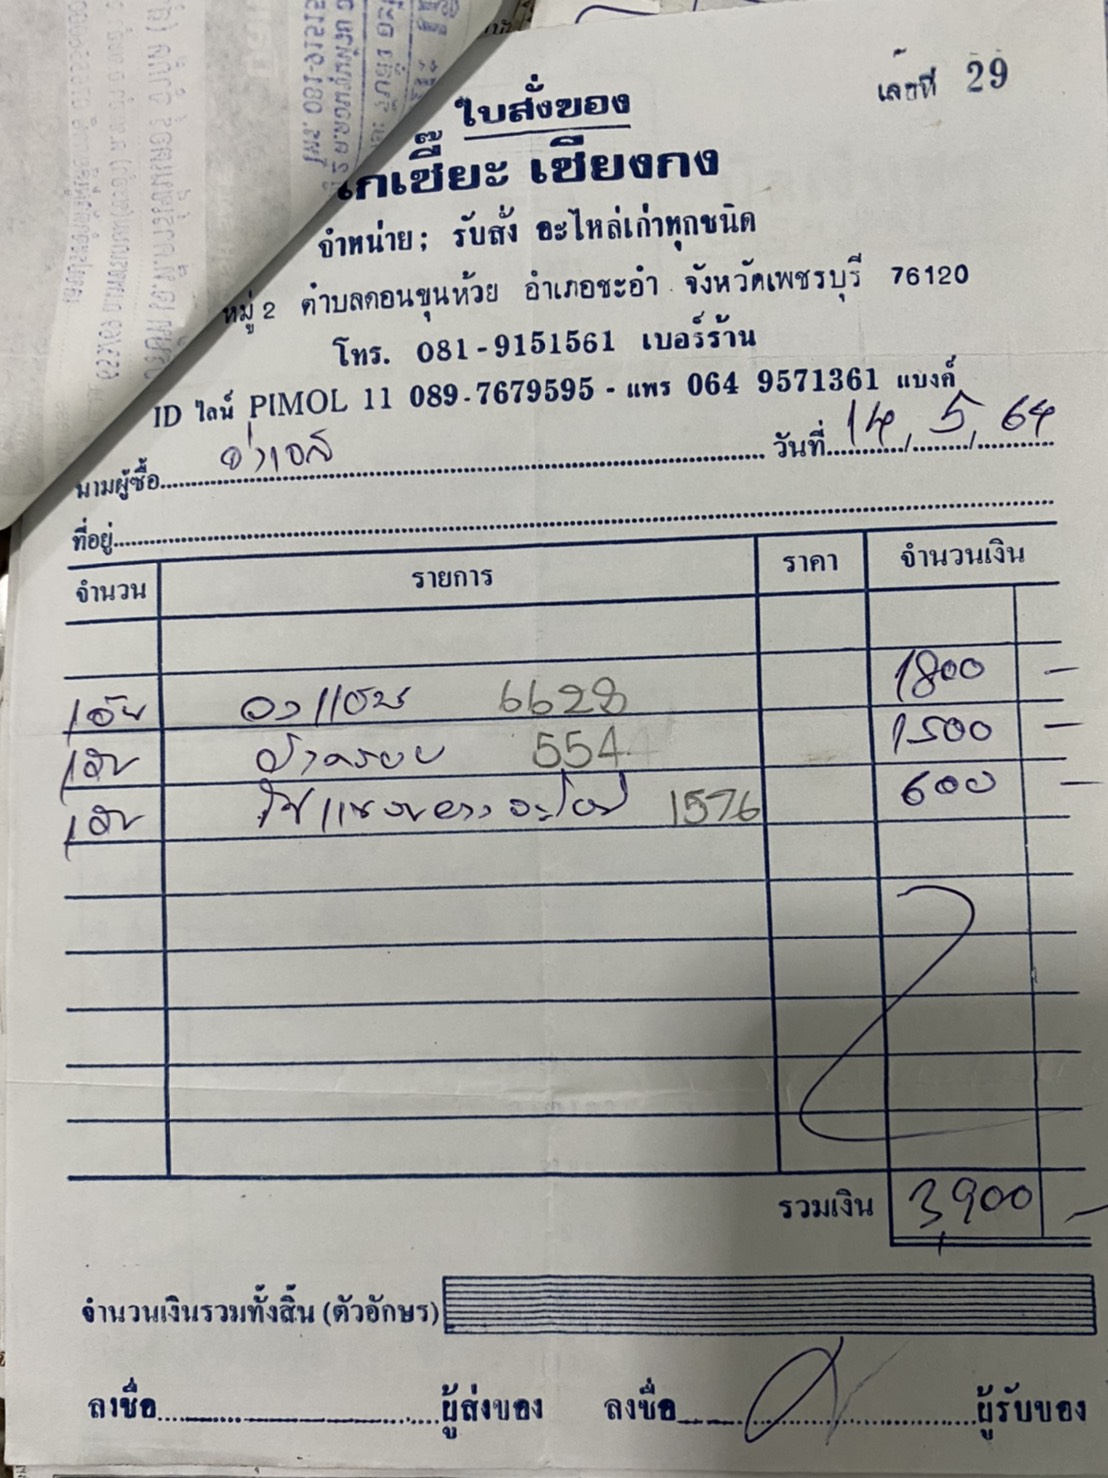 เลขที่ 29
ใบสั่งของ
โกเซี๊ยะ เซียงกง
จำหน่าย ; รับสั่ง อะไหล่เก่าทุกชนิด
หมู่ 2 ตำบลดอนขุนห้วย อำเภอชะอำ จังหวัดเพชรบุรี 76120
โทร. 081-9151561 เบอร์ร้าน
ID ไลน์ PIMOL 11 089-7679595 - แพร 064 9571361 แบงค์
นามผู้ซื้อ วันที่ 14 / 5 / 64
ที่อยู่
จำนวน รายการ ราคา จำนวนเงิน
1อัน 6628 1800 -
1อัน ฝาครอบ 554 1500 -
1อัน 1576 600 -
รวมเงิน 3,900 -
จำนวนเงินรวมทั้งสิ้น (ตัวอักษร)
ลงชื่อ ผู้ส่งของ ลงชื่อ ผู้รับของ